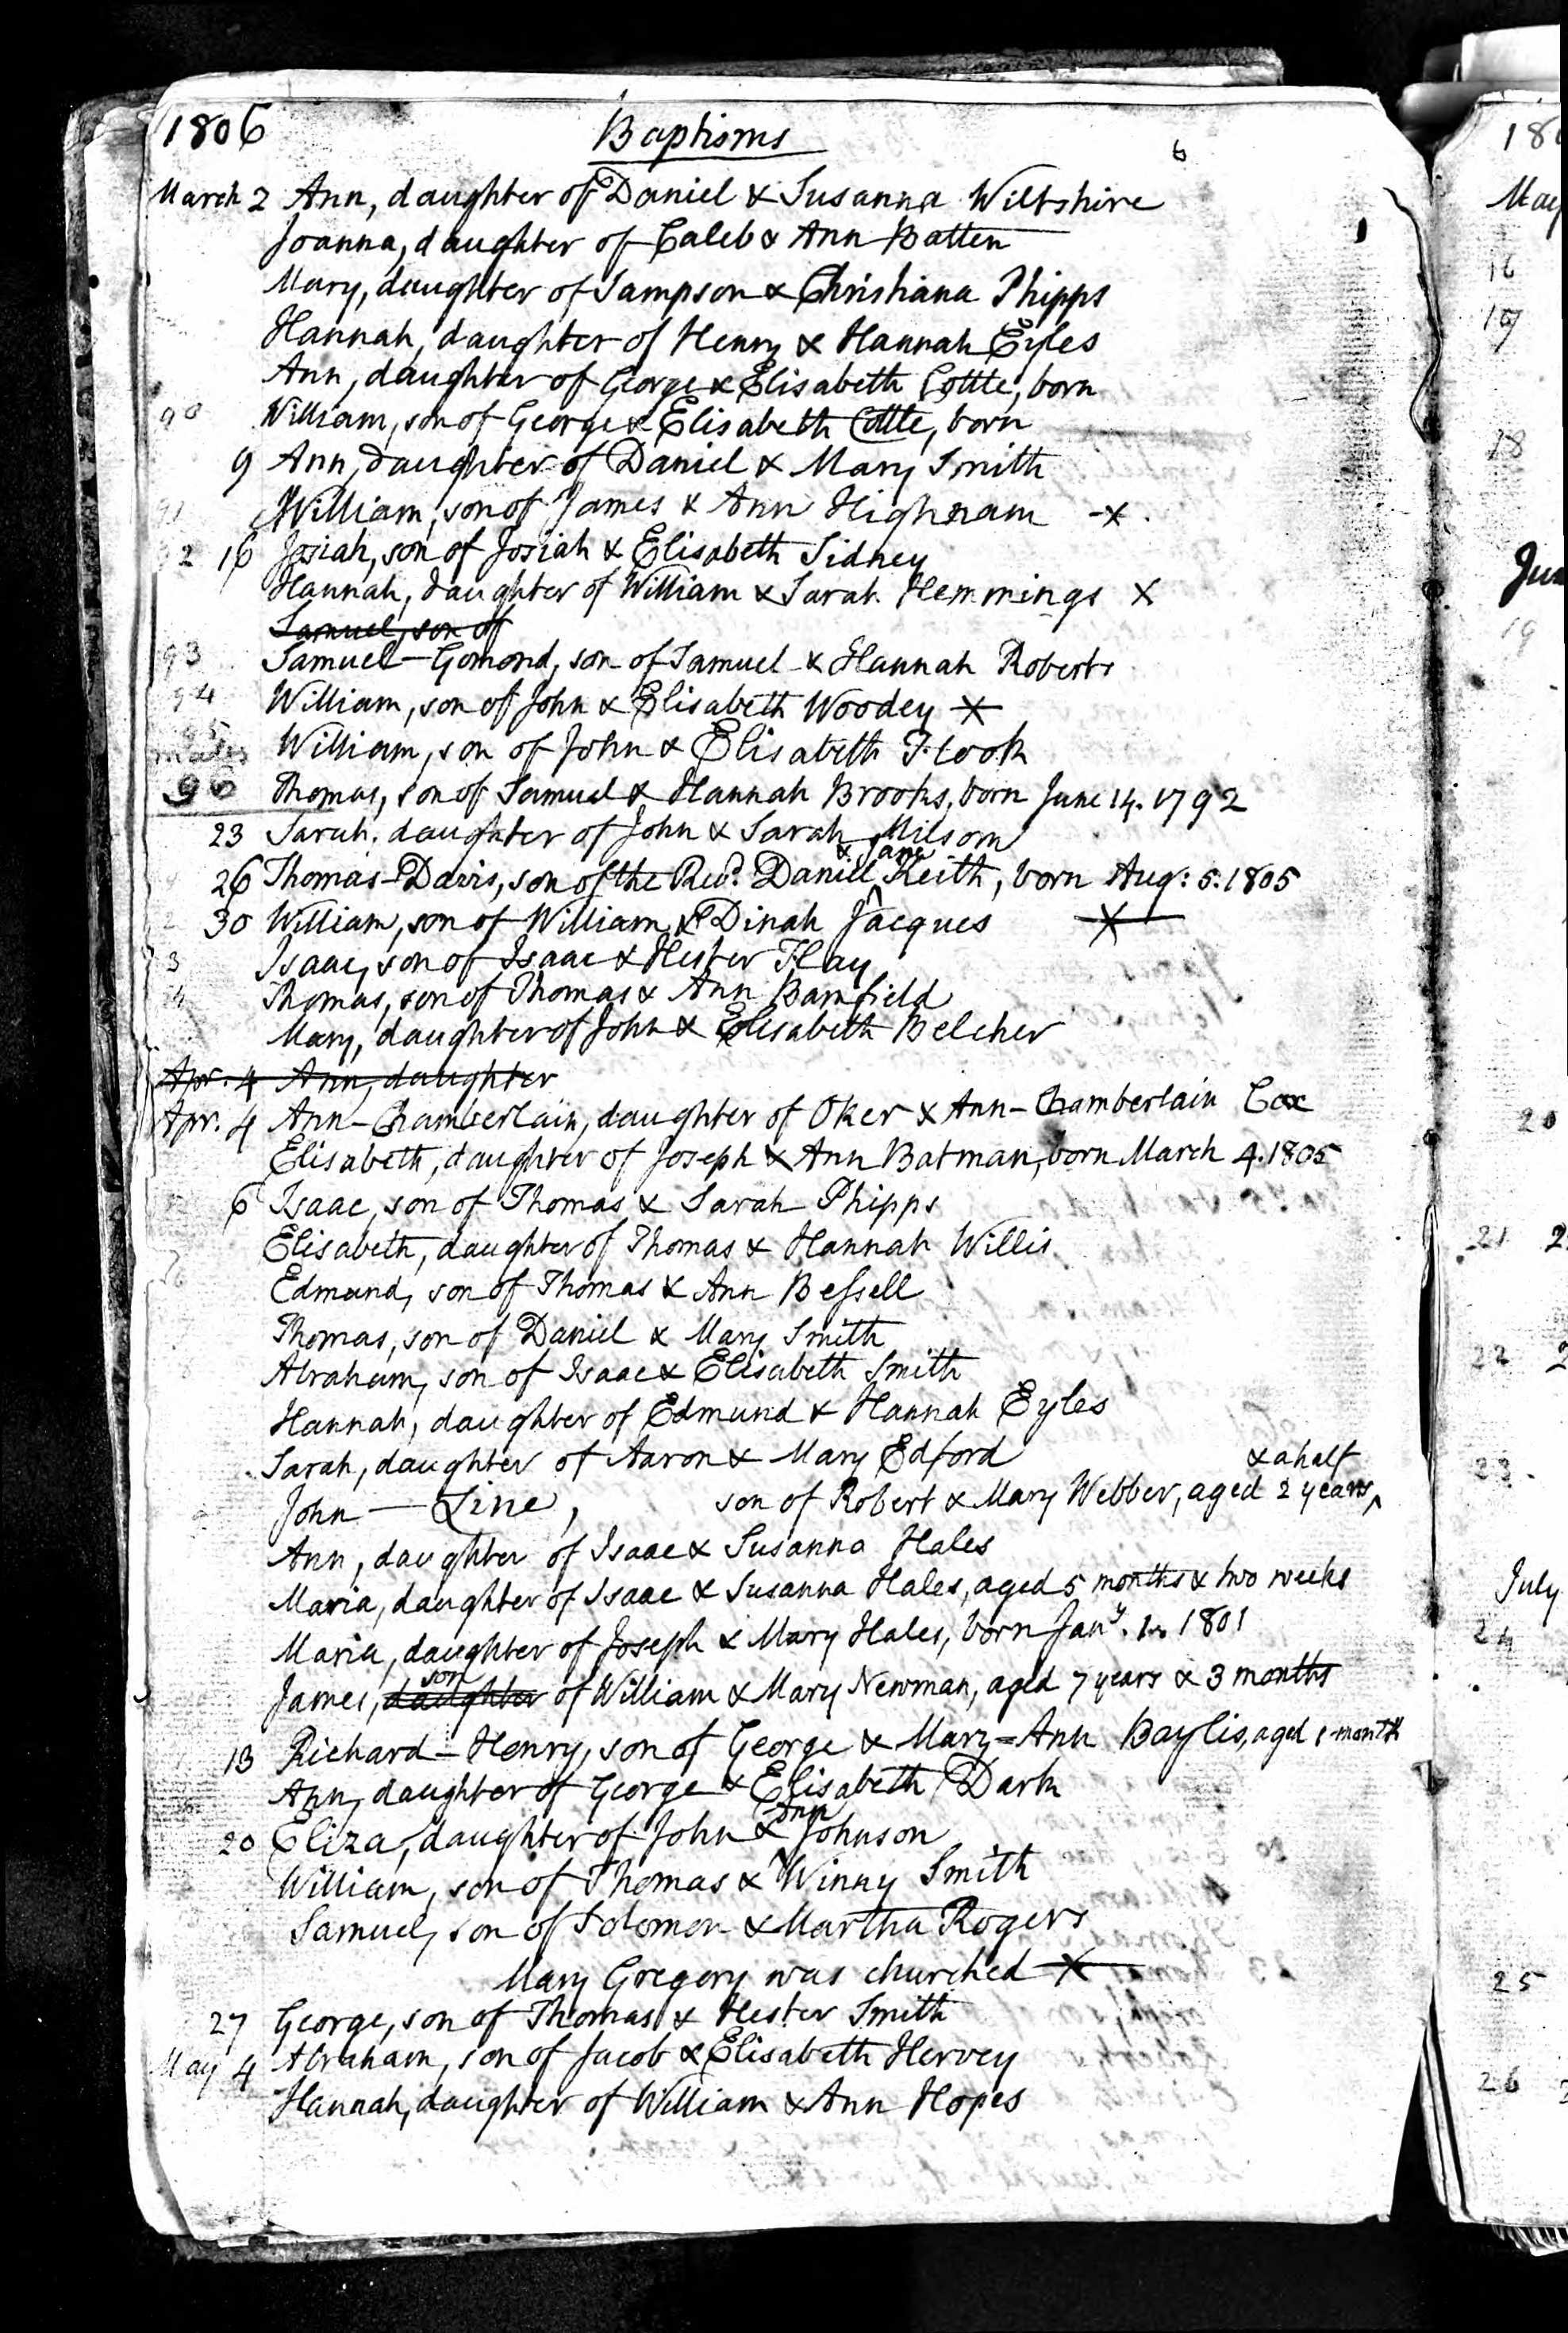 1806 Baptisms
6
March 2 Ann, daughter of Daniel & Susanna Wiltshire
Joanna, daughter of Caleb & Ann Batten
Mary, daughter of Sampson & Christiana Phipps
Hannah, daughter of Henry & Hannah Eyles
Ann, daughter of George & Elisabeth Cottle, born
90 William, son of George & Elisabeth Cottle, born
9 Ann, daughter of Daniel & Mary Smith
91 William, son of James & Ann Highnam -x.
92 16 Josiah, son of Josiah & Elisabeth Sidney
Hannah, daughter of William & Sarah Hemmings X
Samuel, son of
93 Samuel-Gomond, son of Samuel & Hannah Roberts
94 William, son of John & Elisabeth Woodey X
95 William, son of John & Elisabeth Flook
males
96 Thomas, son of Samuel & Hannah Brooks, born June 14. 1792
23 Sarah, daughter of John & Sarah Milsom
& Jane
26 Thomas-Davis, son of the Revd. Daniel ^ Keith, born Aug: 5. 1805
2 30 William, son of William & Dinah Jacques X
3 Isaac, son of Isaac & Hester Flay
4 Thomas, son of Thomas & Ann Bamfield
Mary, daughter of John & Elisabeth Belcher
Apr. 4 Ann, daughter
Apr. 4 Ann-Chamberlain, daughter of Oker & Ann-Chamberlain Cox
Elisabeth, daughter of Joseph & Ann Batman, born March 4. 1805
6 Isaac, son of Thomas & Sarah Phipps
Elisabeth, daughter of Thomas & Hannah Willis
Edmund, son of Thomas & Ann Beſsell
Thomas, son of Daniel & Mary Smith
Abraham, son of Isaac & Elisabeth Smith
Hannah, daughter of Edmund & Hannah Eyles
Sarah, daughter of Aaron & Mary Edford
& a half
John - Line, son of Robert & Mary Webber, aged 2 years ^
Ann, daughter of Isaac & Susanna Hales
Maria, daughter of Isaac & Susanna Hales, aged 5 months & two weeks
Maria, daughter of Joseph & Mary Hales, born Jany. 1. 1801
son
James, daughter of William & Mary Newman, aged 7 years & 3 months
13 Richard-Henry, son of George & Mary=Ann Baylis, aged 1 month
Ann, daughter of George & Elisabeth Dark
Ann
20 Eliza, daughter of John & ^ Johnson
William, son of Thomas & Winny Smith
Samuel, son of Solomon & Martha Rogers
Mary Gregory was churched X
27 George, son of Thomas & Hester Smith
May 4 Abraham, son of Jacob & Elisabeth Hervey
Hannah, daughter of William & Ann Hopes
18
May
16
17
18
Jun
19
20
21 2
22 2
23
July
24
25
26